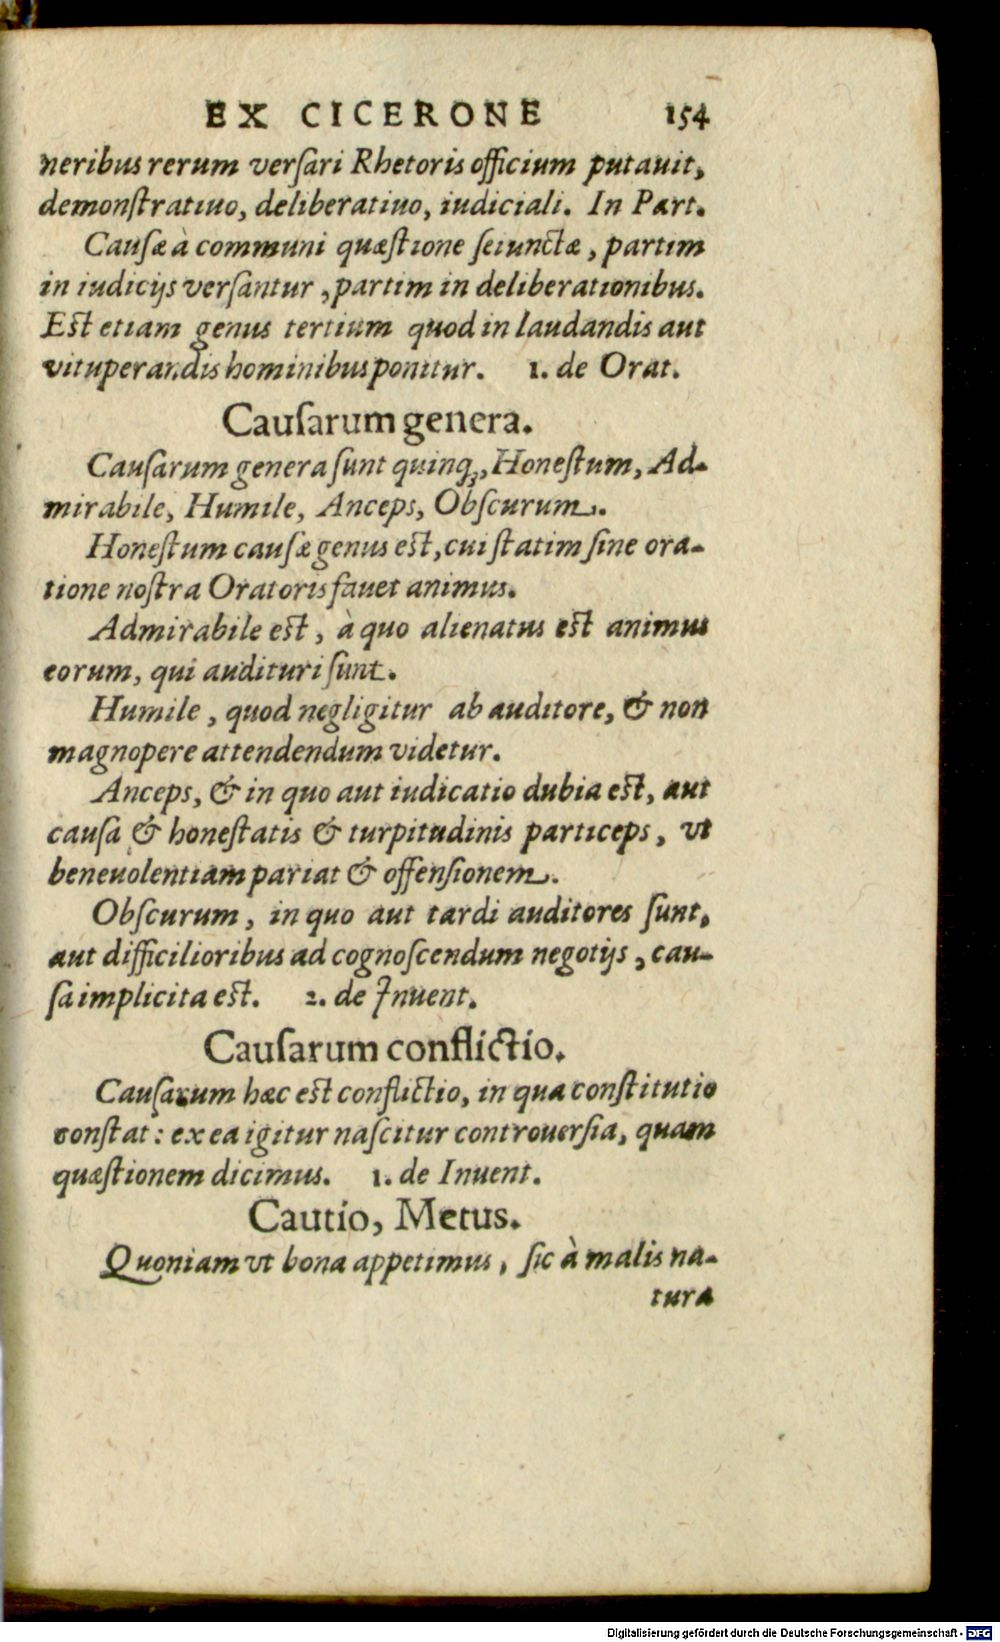 EX CICERONE 154
neribus rerum verſari Rhetoris officium putauit,
demonſtratiuo, deliberatiuo, iudiciali. In Part.
Cauſæ à communi quæſtione ſeiunctæ, partim
in iudicijs verſantur, partim in deliberationibus.
Eſt etiam genus tertium quod in laudandis aut
vituperandis hominibus ponitur. 1. de Orat.
Cauſarum genera.
Cauſarum genera ſunt quinq;, Honeſtum, Ad-
mirabile, Humile, Anceps, Obſcurum.
Honeſtum cauſæ genus eſt, cui ſtatim ſine ora-
tione noſtra Oratoris fauet animus.
Admirabile eſt, à quo alienatus eſt animus
eorum, qui audituri ſunt.
Humile, quod negligitur ab auditore, & non
magnopere attendendum videtur.
Anceps, & in quo aut iudicatio dubia eſt, aut
cauſa & honeſtatis & turpitudinis particeps, vt
beneuolentiam pariat & offenſionem.
Obſcurum, in quo aut tardi auditores ſunt,
aut difficilioribus ad cognoſcendum negotijs, cau-
ſa implicita eſt. 2. de Inuent.
Cauſarum conflictio.
Cauſarum hæc eſt conflictio, in qua conſtitutio
conſtat: ex ea igitur naſcitur controuerſia, quam
quæſtionem dicimus. 1. de Inuent.
Cautio, Metus.
Quoniam vt bona appetimus, ſic à malis na-
tura
Digitalisierung gefördert durch die Deutsche Forschungsgemeinschaft - DFG